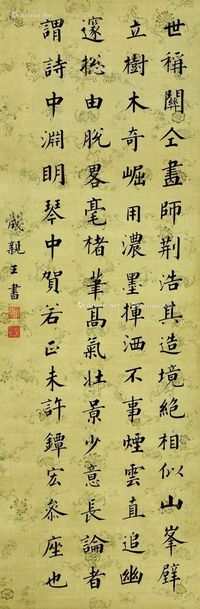 世稱關仝畫師荆浩其造境絕相似山峯壁
立樹木奇崛用濃墨揮洒不事煙雲直追幽
邃摠由脫畧毫楮筆髙氣壯景少意長論者
謂詩中淵明琴中賀若正未許鐔宏叅座也
成親王書